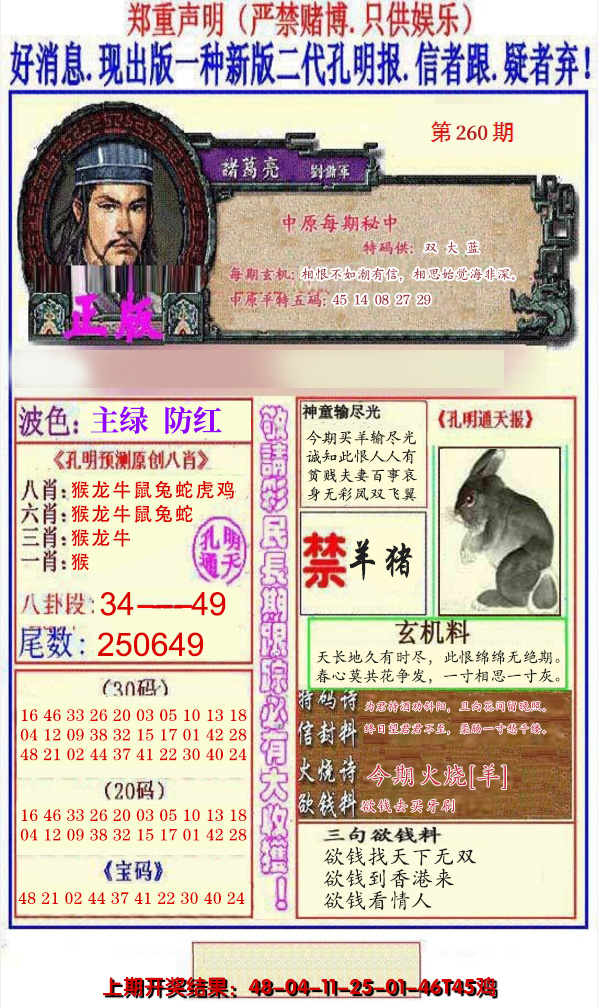 郑重声明（严禁赌博.只供娱乐）
好消息.现出版一种新版二代孔明报.信者跟.疑者弃！
第260期
諸葛亮 劉備軍
中原每期秘中
特码供：双大蓝
每期玄机：相恨不如潮有信，相思始觉海非深。
中原平特五码：45 14 08 27 29
正版
波色：主绿 防红
《孔明预测原创八肖》
八肖：猴龙牛鼠兔蛇虎鸡
六肖：猴龙牛鼠兔蛇
三肖：猴龙牛
一肖：猴
孔明
通天
八卦段：34-----49
尾数：250649
（30码）
16 46 33 26 20 03 05 10 13 18
04 12 09 38 32 15 17 01 42 28
48 21 02 44 37 41 22 30 40 24
（20码）
16 46 33 26 20 03 05 10 13 18
04 12 09 38 32 15 17 01 42 28
《宝码》
48 21 02 44 37 41 22 30 40 24
敬請彩民長期跟踪必有大收獲！
神童输尽光
今期买羊输尽光
诚知此恨人人有
贫贱夫妻百事哀
身无彩凤双飞翼
《孔明通天报》
禁羊猪
玄机料
天长地久有时尽，此恨绵绵无绝期。
春心莫共花争发，一寸相思一寸灰。
特码诗 为君持酒劝斜阳，且向花间留晚照。
信封料 终日望君君不至，柔肠一寸愁千缕。
火烧诗 今期火烧[羊]
欲钱料 欲钱去买牙刷
三句欲钱料
欲钱找天下无双
欲钱到香港来
欲钱看情人
上期开奖结果：48-04-11-25-01-46T45鸡